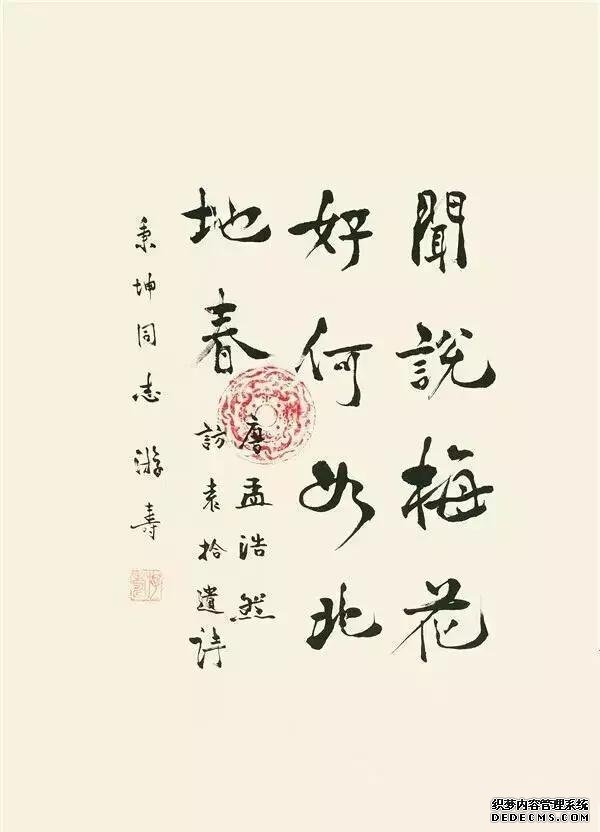 聞說梅花
好何如北
地春
唐孟浩然
訪袁拾遺詩
秉坤同志游壽
织梦内容管理系统
DEDECMS.COM